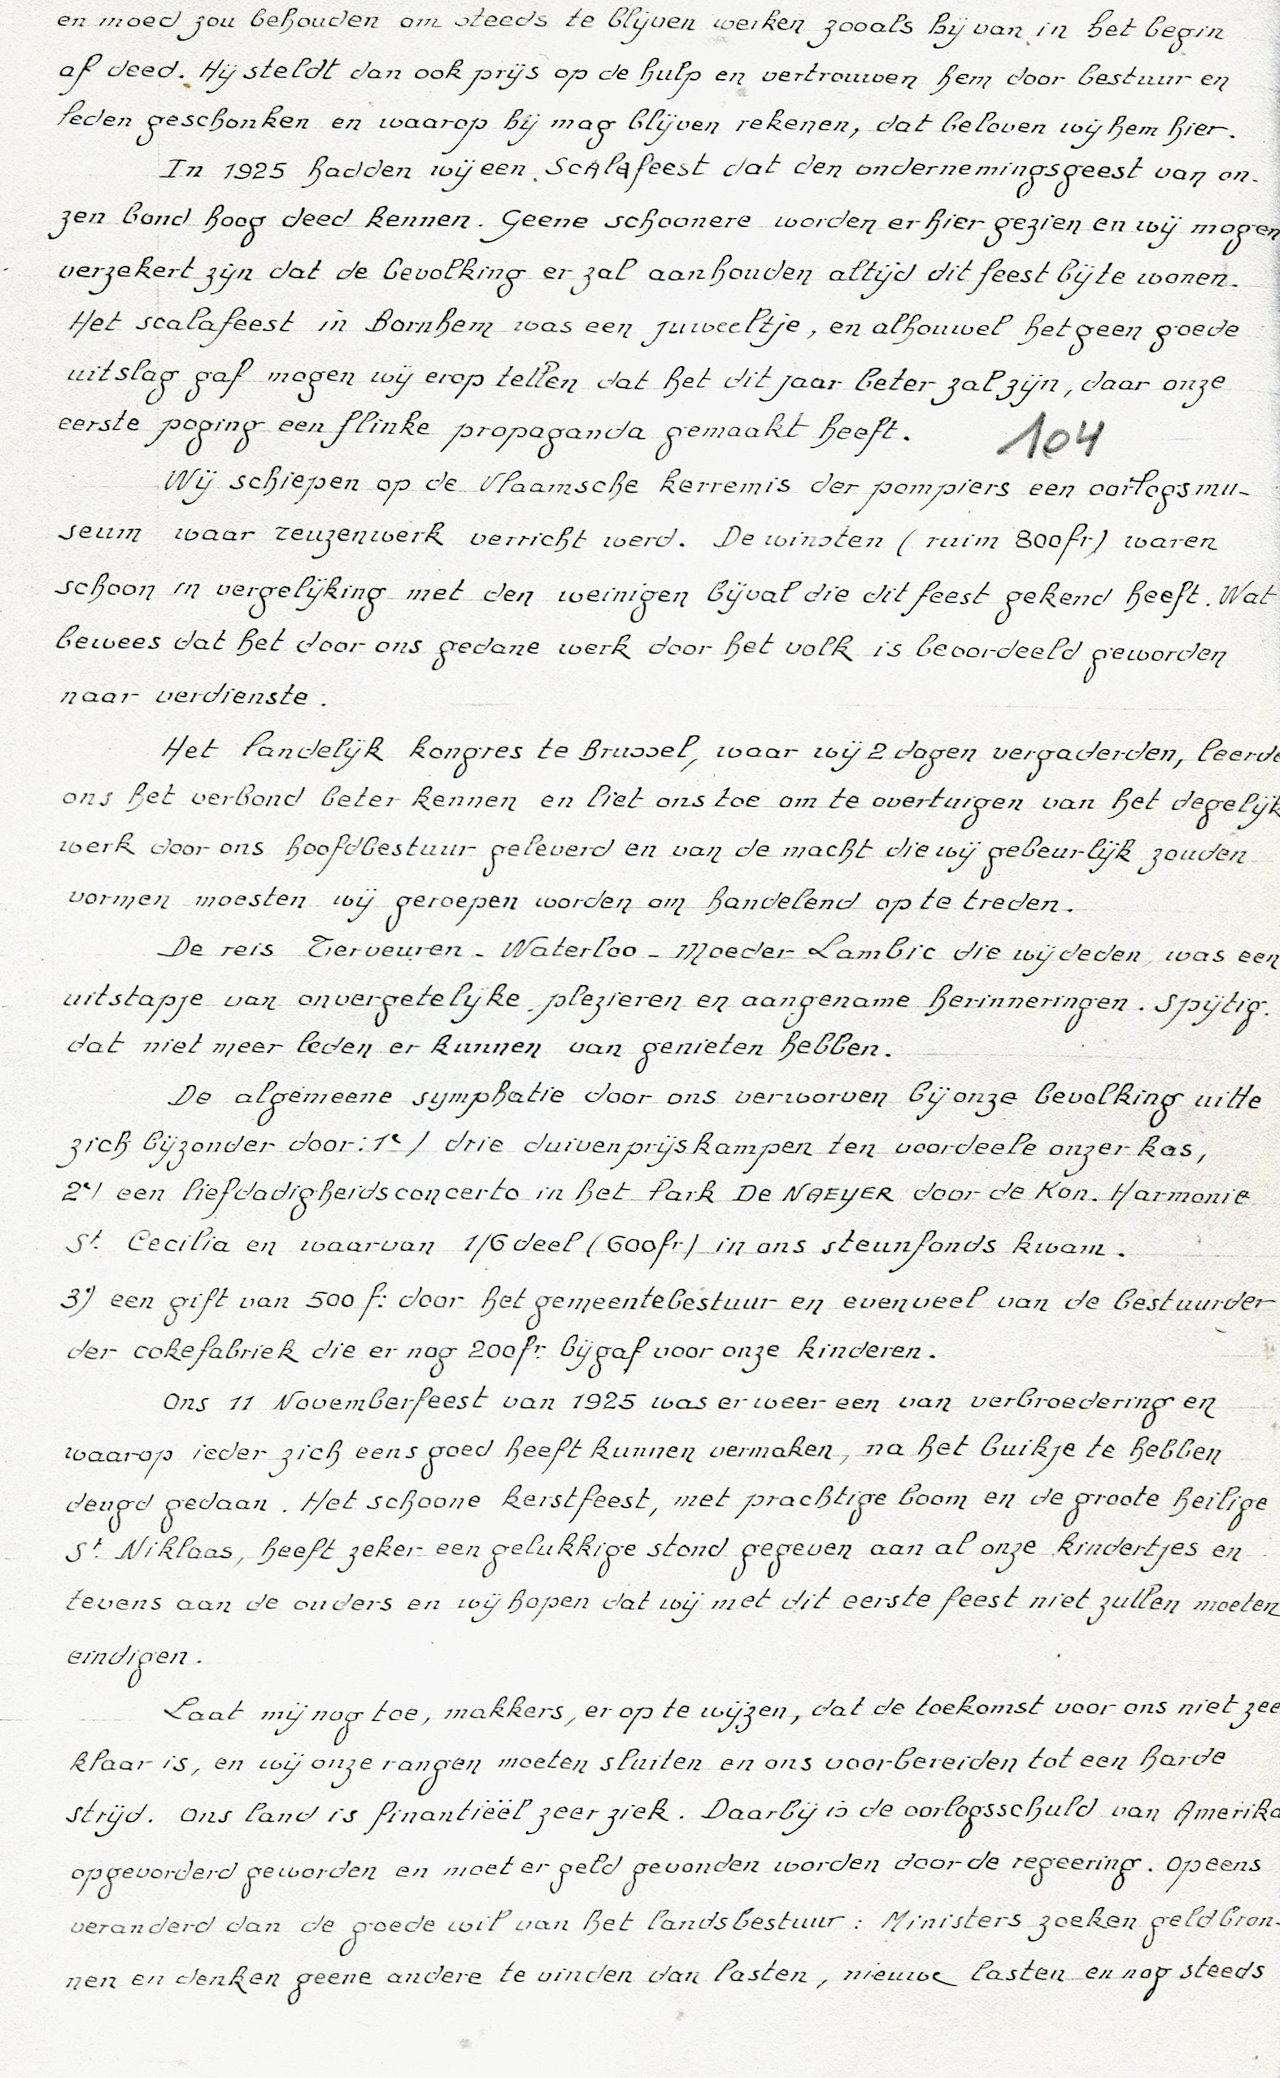 en moed zou behouden om steeds te blijven werken zooals hij van in het begin
af deed. Hij steldt dan ook prijs op de hulp en vertrouwen hem door bestuur en
leden geschonken en waarop hij mag blijven rekenen, dat beloven wij hem hier.
In 1925 hadden wij een Scalafeest dat den ondernemingsgeest van on-
zen bond hoog deed kennen. Geene schoonere worden er hier gezien en wij mogen
verzekert zijn dat de bevolking er zal aanhouden altijd dit feest bij te wonen.
Het scalafeest in Bornhem was een juweeltje, en alhouwel het geen goede
uitslag gaf mogen wij erop tellen dat het dit jaar beter zal zijn, daar onze
eerste poging een flinke propaganda gemaakt heeft.
104
Wij schiepen op de Vlaamsche kerremis der pompiers een oorlogsmu-
seum waar reuzenwerk verricht werd. De winsten (ruim 800fr) waren
schoon in vergelijking met den weinigen bijval die dit feest gekend heeft. Wat
bewees dat het door ons gedane werk door het volk is beoordeeld geworden
naar verdienste.
Het landelijk kongres te Brussel, waar wij 2 dagen vergaderden, leerde
ons het verbond beter kennen en liet ons toe om te overtuigen van het degelijk
werk door ons hoofdbestuur geleverd en van de macht die wij gebeurlijk zouden
vormen moesten wij geroepen worden om handelend op te treden.
De reis Terveuren - Waterloo - Moeder Lambic die wij deden was een
uitstapje van onvergetelijke plezieren en aangename herinneringen. Spijtig.
dat niet meer leden er kunnen van genieten hebben.
De algemeene symphatie door ons verworven bij onze bevolking uitte
zich bijzonder door: 1e) drie duivenprijskampen ten voordeele onzer kas,
2e) een liefdadigheidsconcerto in het Park De NAEYER door de Kon. Harmonie
St. Cecilia en waarvan 1/6 deel (600fr) in ons steunfonds kwam.
3e) een gift van 500 f: door het gemeentebestuur en evenveel van de bestuurder
der cokefabriek die er nog 200fr. bijgaf voor onze kinderen.
Ons 11 Novemberfeest van 1925 was er weer een van verbroedering en
waarop ieder zich eens goed heeft kunnen vermaken, na het buikje te hebben
deugd gedaan. Het schoone kerstfeest, met prachtige boom en de groote heilige
St. Niklaas, heeft zeker een gelukkige stond gegeven aan al onze kindertjes en
tevens aan de ouders en wij hopen dat wij met dit eerste feest niet zullen moeten
eindigen.
Laat mij nog toe, makkers, er op te wijzen, dat de toekomst voor ons niet zee
klaar is, en wij onze rangen moeten sluiten en ons voorbereiden tot een harde
strijd. Ons land is finantiëel zeer ziek. Daarbij is de oorlogsschuld van Amerika
opgevorderd geworden en moet er geld gevonden worden door de regeering. Opeens
veranderd dan de goede wil van het landsbestuur: Ministers zoeken geldbron-
nen en denken geene andere te vinden dan lasten, nieuwe lasten en nog steeds